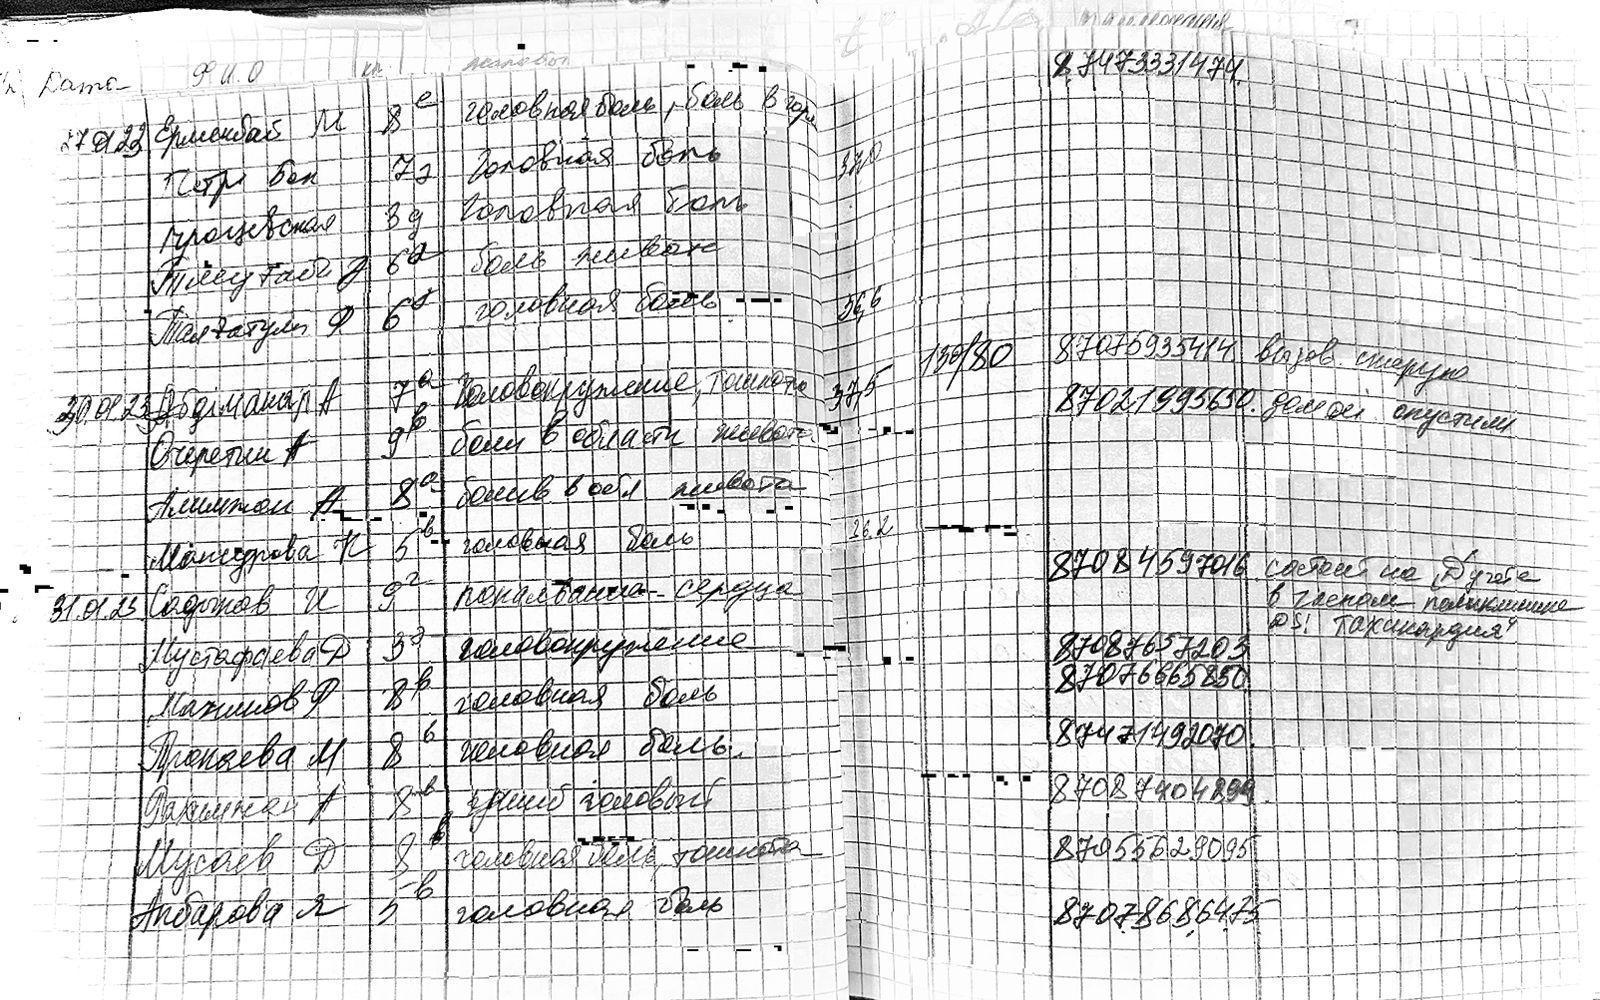 Дата Ф.И.О кл жалобы t° А/Д
87473331474
27.01.23 Ермекбай М 8 е головная боль, боль в горл
Петр Бон 7 д Головная боль 37,0
3 д Головная боль
6 д боль живот
Талгатулы Ф 6 головная боль 36,6
30.01.23 Абдіманап А 7 а Головокружение, тошнота 37,5 130/80 87075935414 вызов. скорую
Очеретин А 9 в боли в области живота 87021995650. домой отпустили
Алимжан А 8 а боли в обл живота
Мансурова К 5 в головная боль 36.2
31.01.23 Садыков И 9 г покалывание сердца 87084597016 состоит на "Д" учете
в глазном поликлинике
DS! Тахикардия"
Мустафаева Д 3 з головокружение 87087657203
Махинов Р 8 в головная боль 87076665850
Пропаева М 8 в головная боль. 87471492070.
Рахимжан А 8 в головный 87087404899.
Мусаев Д 8 в головная боль, тошнота 87055629095
Акбарова Я 5 в головная боль 87078686475